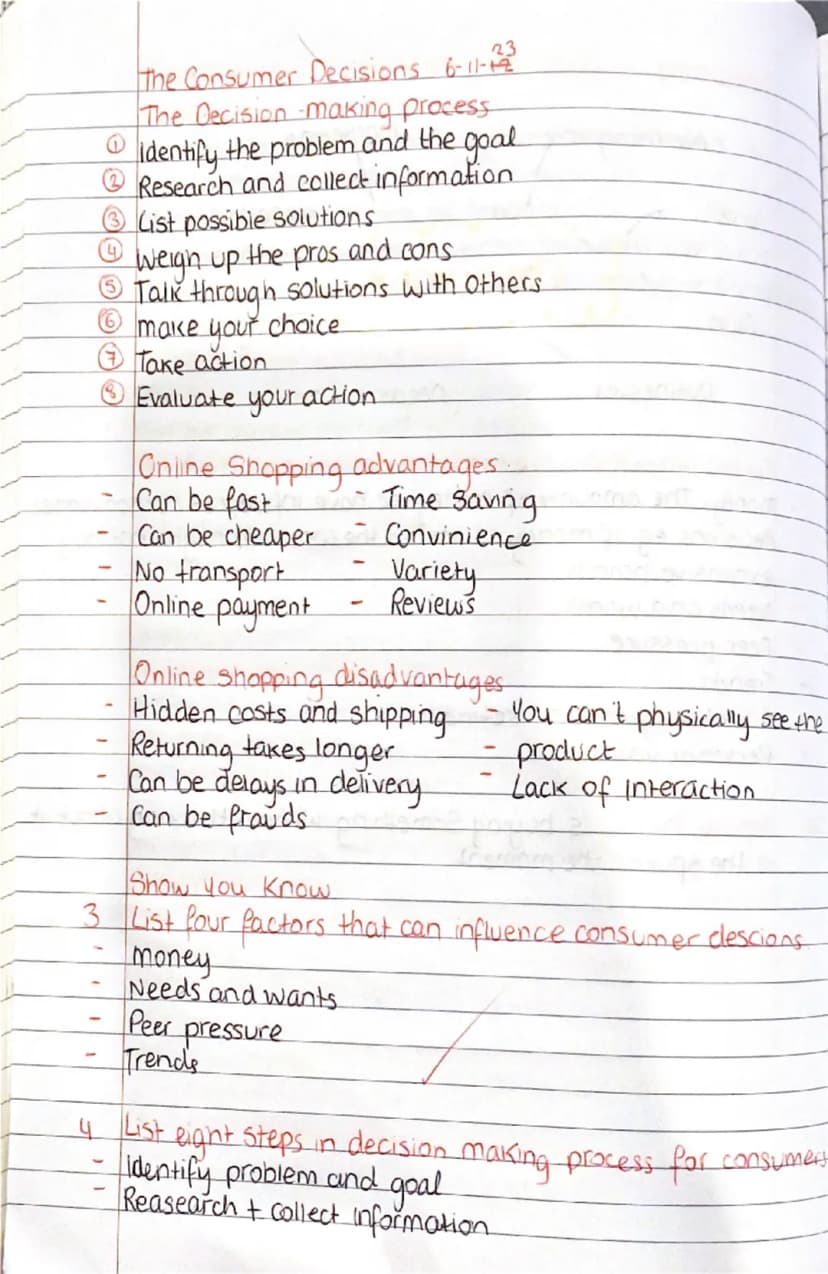 The Consumer Decisions 6-11-23
The Decision-making process
① Identify the problem and the goal
② Research and collect information
③ List possible solutions
④ Weigh up the pros and cons
⑤ Talk through solutions with others
⑥ make your choice
⑦ Take action
⑧ Evaluate your action
Online Shopping advantages
- Can be fast - Time Saving
- Can be cheaper - Convinience
- No transport - Variety
- Online payment - Reviews
Online shopping disadvantages
- Hidden costs and shipping - You can't physically see the
- Returning takes longer - product
- Can be delays in delivery - Lack of interaction
- Can be frauds
Show you know
3 List four factors that can influence consumer descions
- money
- Needs and wants
- Peer pressure
- Trends
4 List eight steps in decision making process for consumers
- Identify problem and goal
- Reasearch + collect information